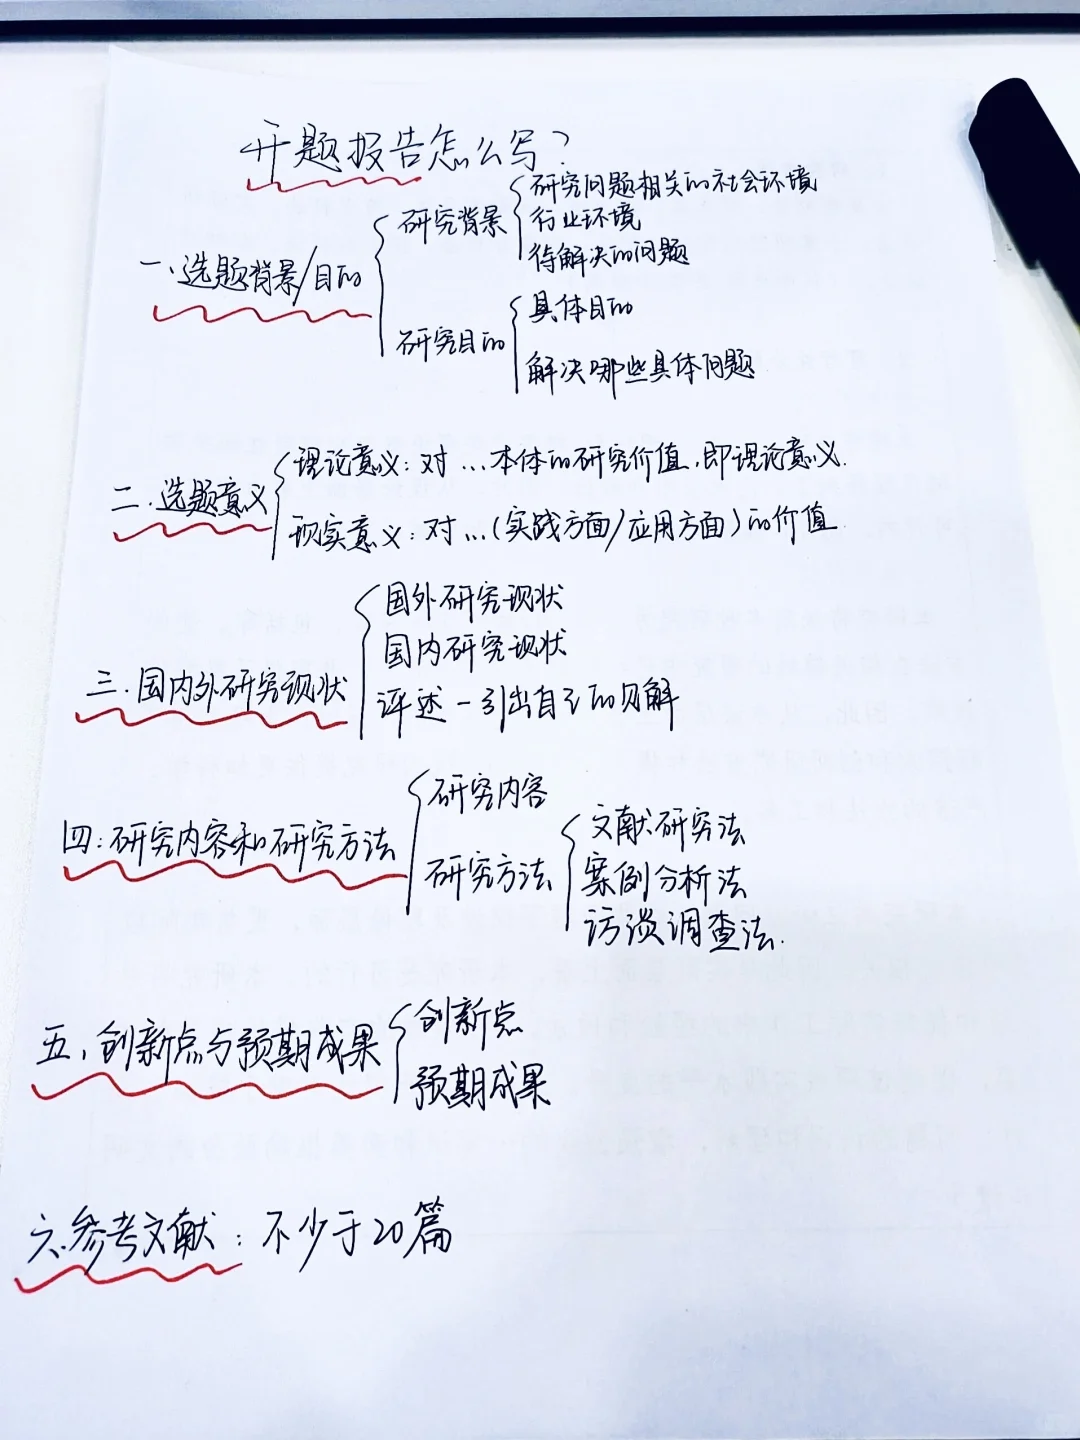 开题报告怎么写？
一、选题背景/目的
研究背景
研究问题相关的社会环境
行业环境
待解决的问题
研究目的
具体目的
解决哪些具体问题
二.选题意义
理论意义：对…本体的研究价值，即理论意义.
现实意义：对…（实践方面/应用方面）的价值
三.国内外研究现状
国外研究现状
国内研究现状
评述-引出自己的见解
四：研究内容和研究方法
研究内容
研究方法
文献研究法
案例分析法
访谈调查法.
五、创新点与预期成果
创新点
预期成果
六.参考文献：不少于20篇